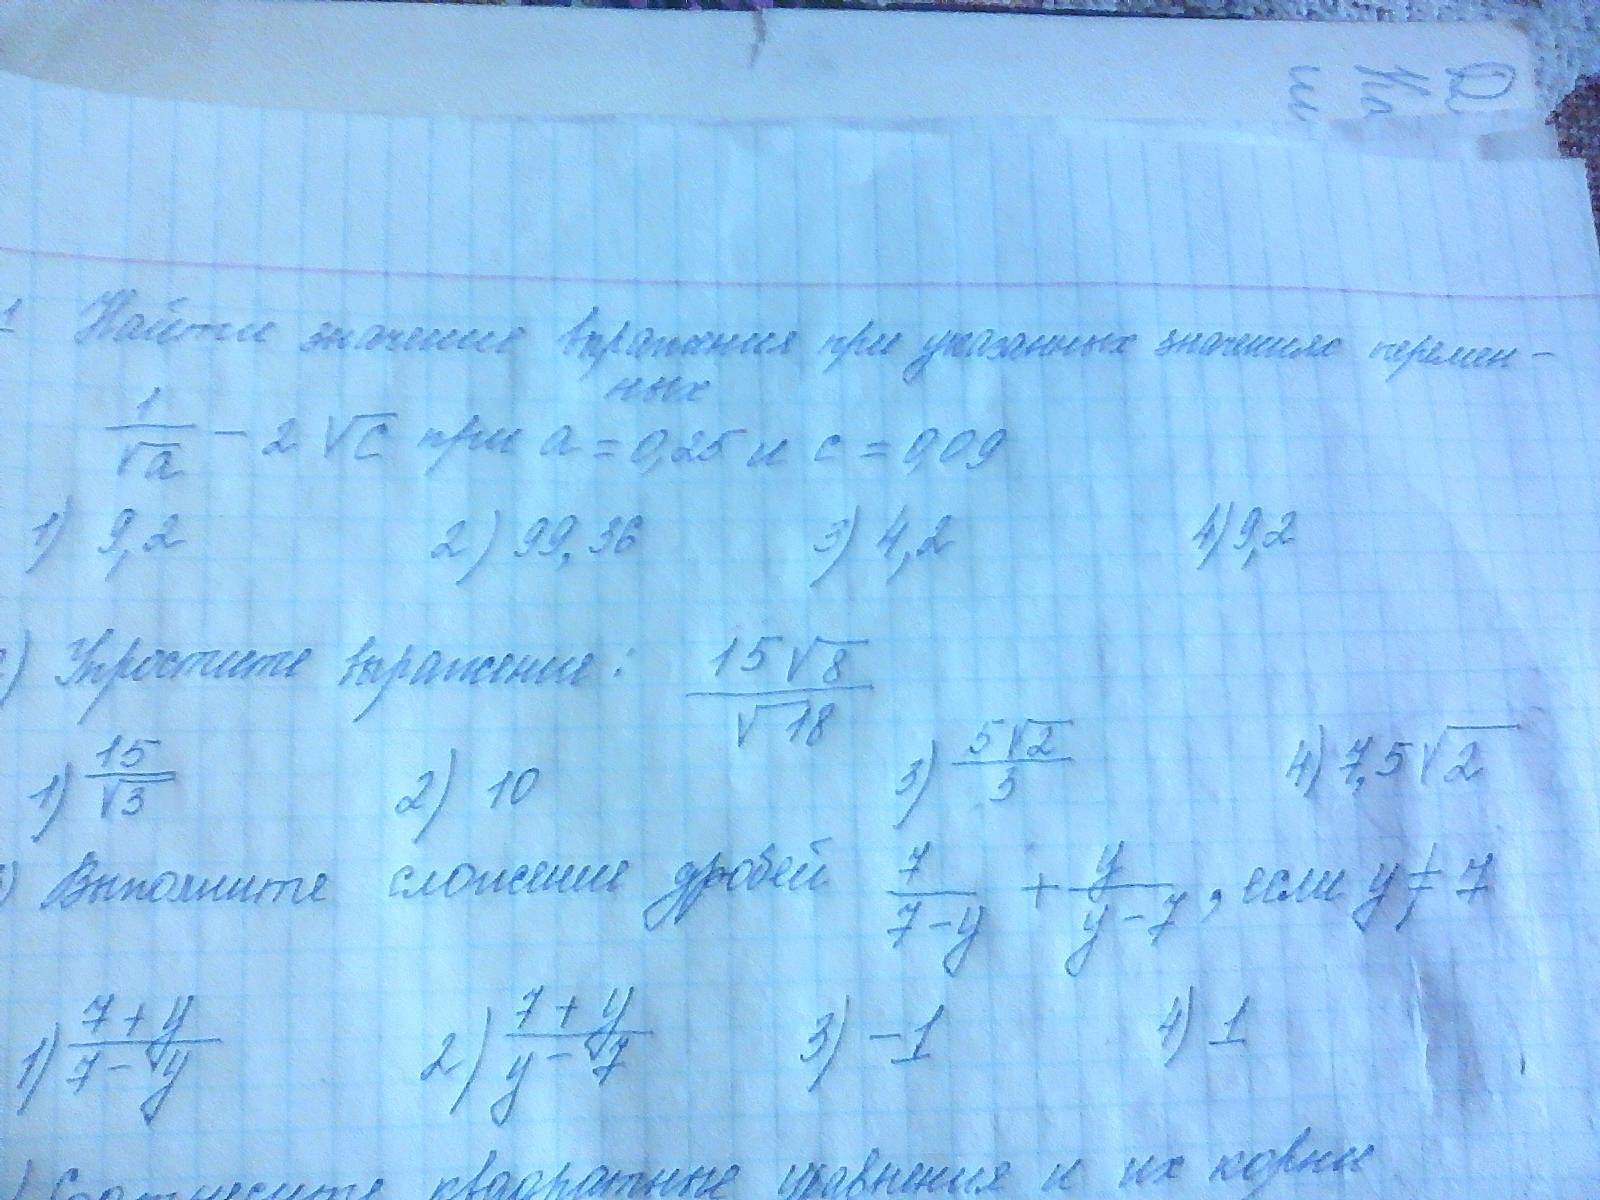 1 Найти значение выражения при указанных значениях перемен-
ных
1/√a - 2√c при a = 0,25 и c = 0,09
1) 9,2 2) 99,36 3) 4,2 4) 9,2
2) Упростите выражение: 15√8/√18
1) 15/√3 2) 10 3) 5√2/3 4) 7,5√2
) Выполните сложение дробей 7/(7-y) + y/(y-7), если y ≠ 7
1) (7+y)/(7-y) 2) (7+y)/(y-7) 3) -1 4) 1
) Соотнесите квадратные уравнения и их корни